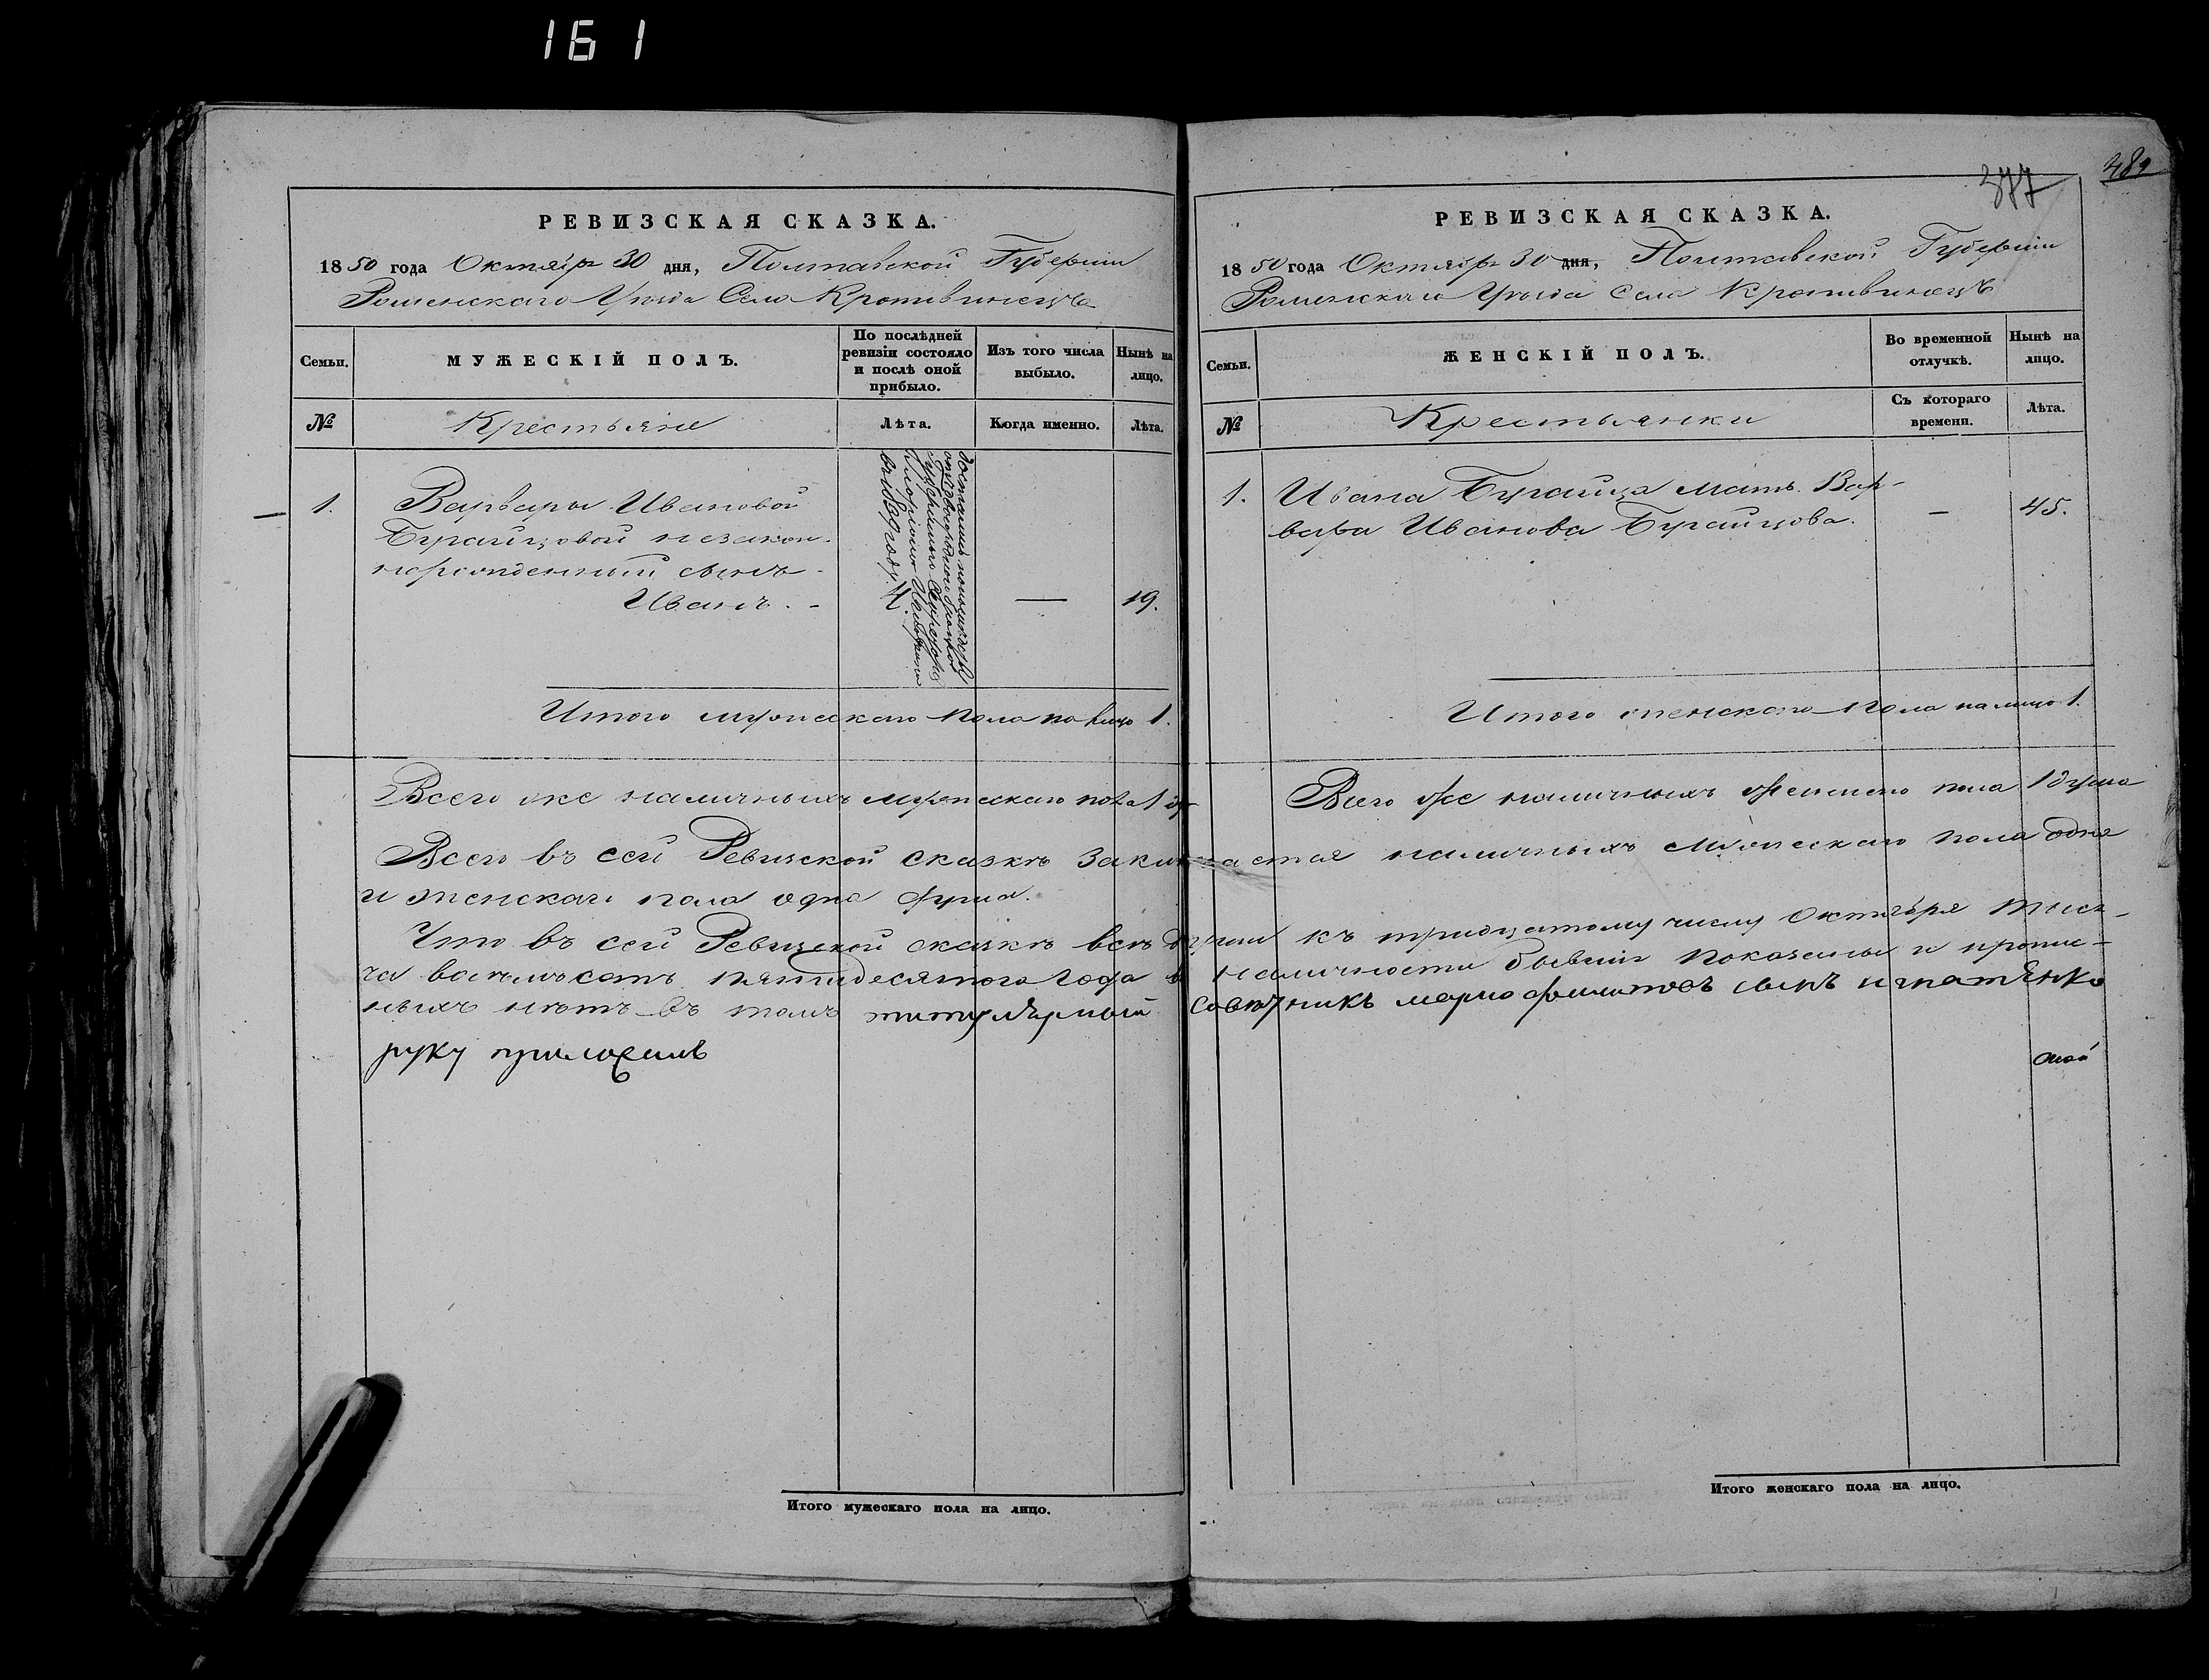 161
РЕВИЗСКАЯ СКАЗКА.
1850 года Октября 30 дня, Полтавской Губерніи
Роменскаго Уѣзда Села Кропивинецъ
Семьи.
МУЖЕСКІЙ ПОЛЪ.
По послѣдней ревизіи состояло и послѣ оной прибыло.
Изъ того числа выбыло.
Нынѣ на лицо.
№
Крестьяне
Лѣта.
Когда именно.
Лѣта.
1.
Варвары Ивановой
Бугайцовой незакон-
норожденный сынъ
Иванъ. -
—
19.
въ 1839 году.
Итого мужескаго пола на лицо 1.
Всего же наличныхъ мужескаго пола 1
377
481
РЕВИЗСКАЯ СКАЗКА.
1850 года Октября 30 дня, Полтавской Губерніи
Роменскаго Уѣзда Села Кропивинецъ
Семьи.
ЖЕНСКІЙ ПОЛЪ.
Во временной отлучкѣ.
Нынѣ на лицо.
№
Крестьянки
Съ котораго времени.
Лѣта.
1.
Ивана Бугайца мать Вар-
вара Иванова Бугайцова.
—
45.
Итого женскаго пола на лицо 1.
Всего же наличныхъ женскаго пола 1 душа
Всего въ сей Ревизской сказкѣ заключается наличныхъ мужескаго пола одна
и женскаго пола одна душа.
Что въ сей Ревизской сказкѣ всѣ души къ тридцатому числу Октября тыся-
ча восемьсотъ пятидесятого года въ наличности бывшія показаны и пропис-
ныхъ нѣтъ въ томъ титулярный советникъ сынъ игнатенко
руку приложилъ
Итого мужескаго пола на лицо.
Итого женскаго пола на лицо.